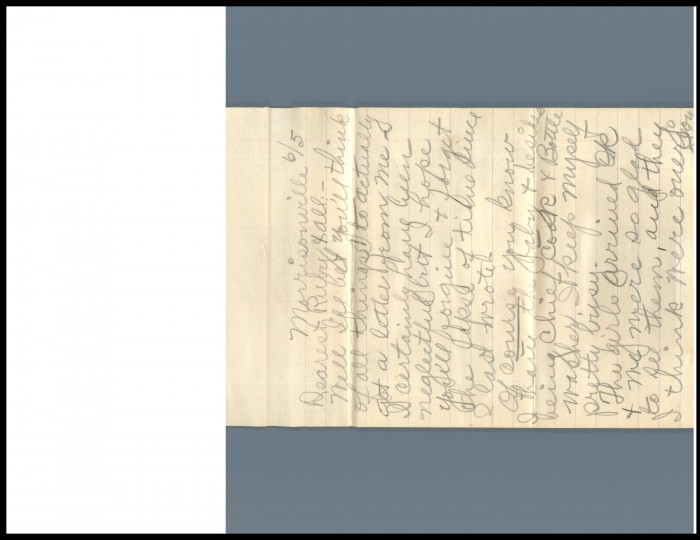 Morrisonville 6/5
Dearest Ruby & all:—
Well I'll bet you'll think
of all things! to actually
got a letter from me. I
certainly have been
neglectful but I hope
you'll forgive & forget
the lapse of time since
I last wrote.
Of course you know
I have the baby &
being chief cook & Bottle
washer I keep myself
pretty busy.
The girls arrived OK
& my were so glad
to see them, and they
I think were over